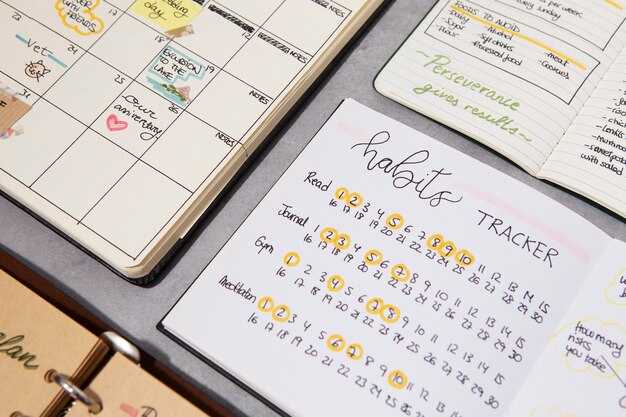 WITH FRIENDS
24
Vet
30
25
31
Our
anniversary
day
EXCURSION
TO THE
LAKE
19
NOTES
NOTES
NOTES
NOTES
per week
Sunday
FOODS TO AVOID
- Dairy
- Alcohol
- meat
- Sugar
- Soft drinks
- Processed food
Perseverance
gives results~
with salad
habits
TRACKER
Read 1 2 3 4 5 6 7 8 9 10 11 12 13 14 15
16 17 18 19 20 21 22 23 24 25 26 27 28 29 30
Journal 1 2 3 4 5 6 7 8 9 10 11 12 13 14 15
16 17 18 19 20 21 22 23 24 25 26 27 28 29 30
Gym 1 2 3 4 5 6 7 8 9 10 11 12 13 14 15
16 17 18 19 20 21 22 23 24 25 26 27 28 29 30
Meditation 1 2 3 4 5 6 7 8 9 10 11 12 13 14 15
16 17 18 19 20 21 22 23 24 25
How many
you take
plan